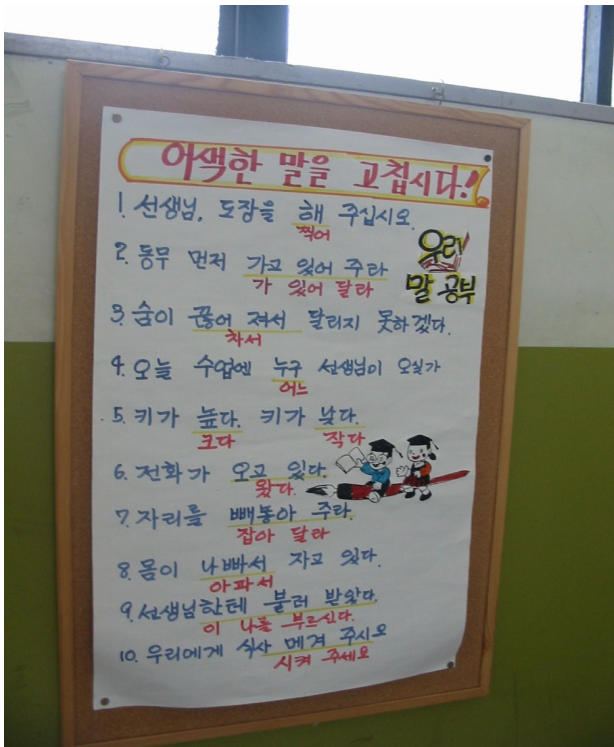 어색한 말을 고칩시다!
1. 선생님, 도장을 해 주십시오.
찍어
우리
말 공부
2. 동무 먼저 가고 있어 주라
가 있어 달라
3. 숨이 끊어 져서 달리지 못하겠다.
차서
4. 오늘 수업엔 누구 선생님이 오실가
어느
5. 키가 높다. 키가 낮다.
크다 작다
6. 전화가 오고 있다.
왔다.
7. 자리를 빼놓아 주라.
잡아 달라
8. 몸이 나빠서 자고 있다.
아파서
9. 선생님한테 불러 받았다.
이 나를 부르신다.
10. 우리에게 식사 메겨 주시오
시켜 주세요